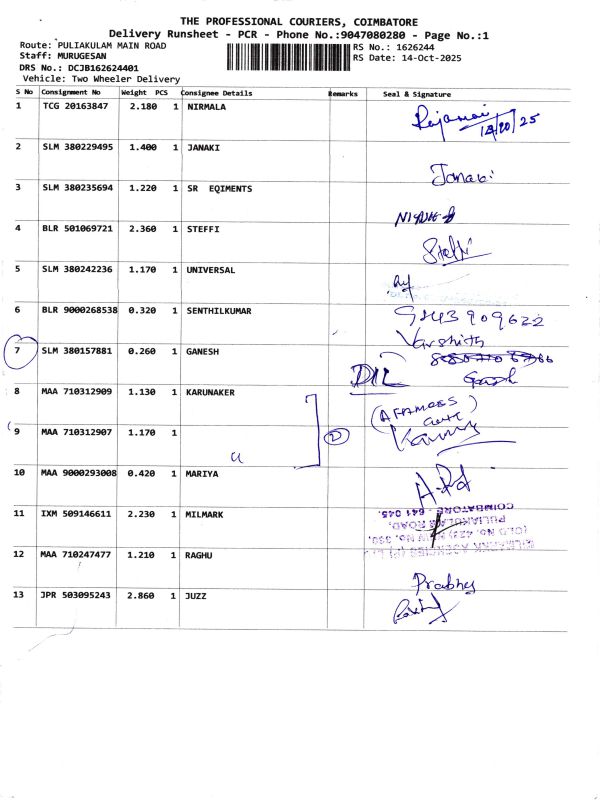 THE PROFESSIONAL COURIERS, COIMBATORE
Delivery Runsheet - PCR - Phone No.:9047080280 - Page No.:1
Route: PULIAKULAM MAIN ROAD RS No.: 1626244
Staff: MURUGESAN RS Date: 14-Oct-2025
DRS No.: DCJB162624401
Vehicle: Two Wheeler Delivery
S No Consignment No Weight PCS Consignee Details Remarks Seal & Signature
1 TCG 20163847 2.180 1 NIRMALA
2 SLM 380229495 1.400 1 JANAKI Janaki
3 SLM 380235694 1.220 1 SR EQIMENTS
4 BLR 501069721 2.360 1 STEFFI Steffi
5 SLM 380242236 1.170 1 UNIVERSAL
6 BLR 9000268538 0.320 1 SENTHILKUMAR 9843909622
Varshith
7 SLM 380157881 0.260 1 GANESH
8 MAA 710312909 1.130 1 KARUNAKER
9 MAA 710312907 1.170 1
10 MAA 9000293008 0.420 1 MARIYA
11 IXM 509146611 2.230 1 MILMARK
COIMBATORE - 641 045.
PULIAKULAM ROAD,
12 MAA 710247477 1.210 1 RAGHU Prabhu
13 JPR 503095243 2.860 1 JUZZ